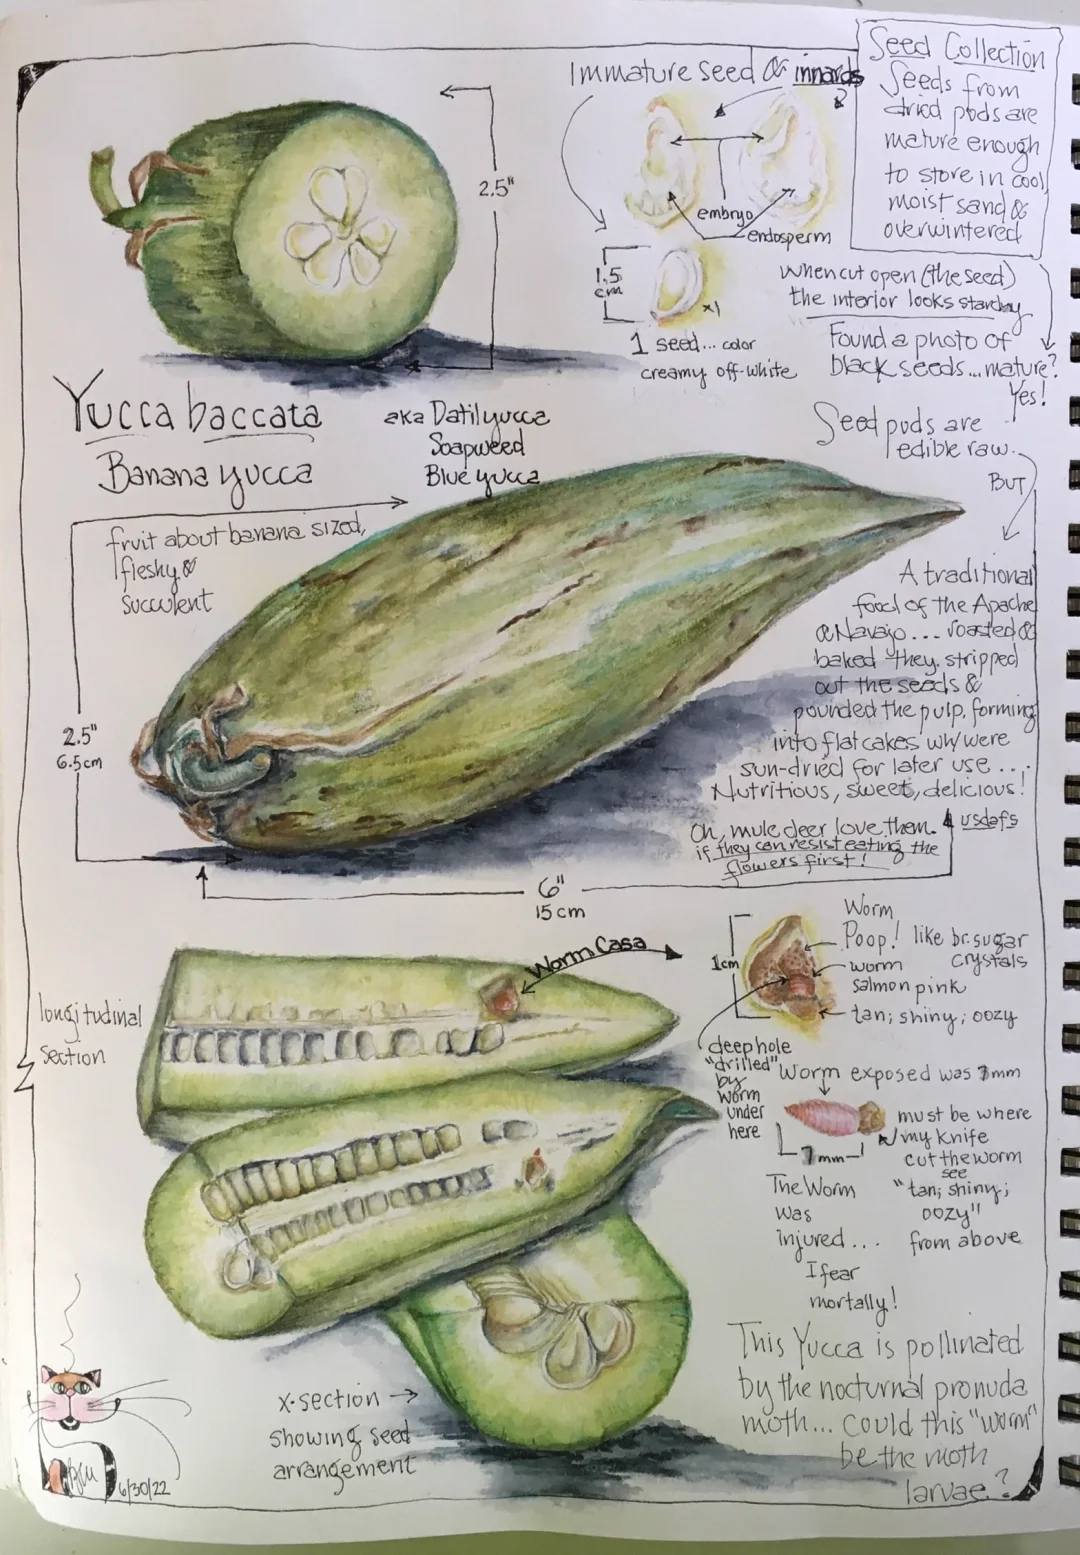 Immature seed & innards
?
Seed Collection
Seeds from
dried pods are
mature enough
to store in cool,
moist sand &
overwintered
2.5"
embryo
endosperm
1.5
cm
x1
1 seed... color
creamy off-white
when cut open (the seed)
the interior looks starchy
Found a photo of
black seeds... mature?
Yes!
Yucca baccata
Banana yucca
aka Datil yucca
Soapweed
Blue yucca
Seed pods are
edible raw.
BUT
fruit about banana sized,
fleshy &
succulent
A traditional
food of the Apache
& Navajo... roasted &
baked they stripped
out the seeds &
pounded the pulp, forming
into flat cakes wh/were
sun-dried for later use...
Nutritious, sweet, delicious!
usdafs
Oh, mule deer love them.
if they can resist eating the
flowers first!
2.5"
6.5cm
6"
15 cm
Worm Casa
longitudinal
section
1cm
Worm
Poop! like br. sugar
crystals
worm
salmon pink
tan; shiny; oozy
deep hole
"drilled"
by
worm
under
here
Worm exposed was 7mm
7mm
must be where
my knife
cut the worm
see
"tan; shiny;
oozy"
from above
The Worm
was
injured...
I fear
mortally!
This Yucca is pollinated
by the nocturnal pronuda
moth... could this "worm"
be the moth
larvae?
x-section
showing seed
arrangement
6/30/22